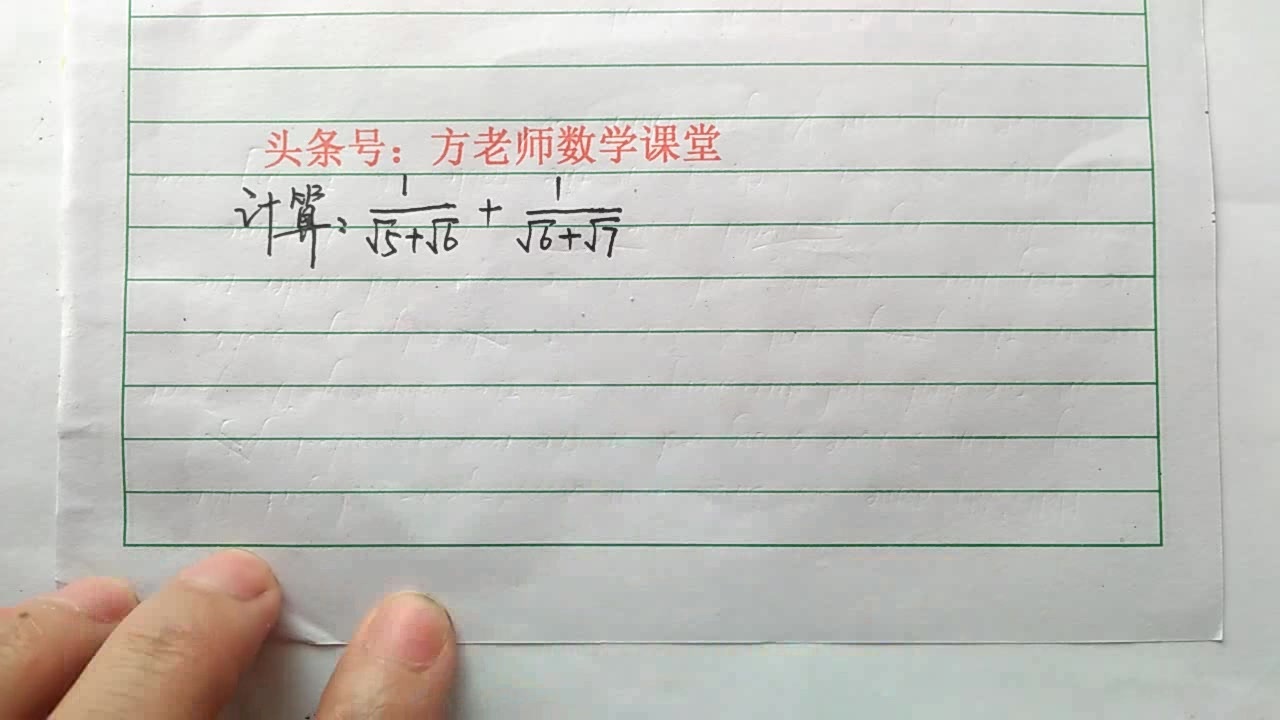 头条号：方老师数学课堂
计算：1/(√5+√6) + 1/(√6+√7)